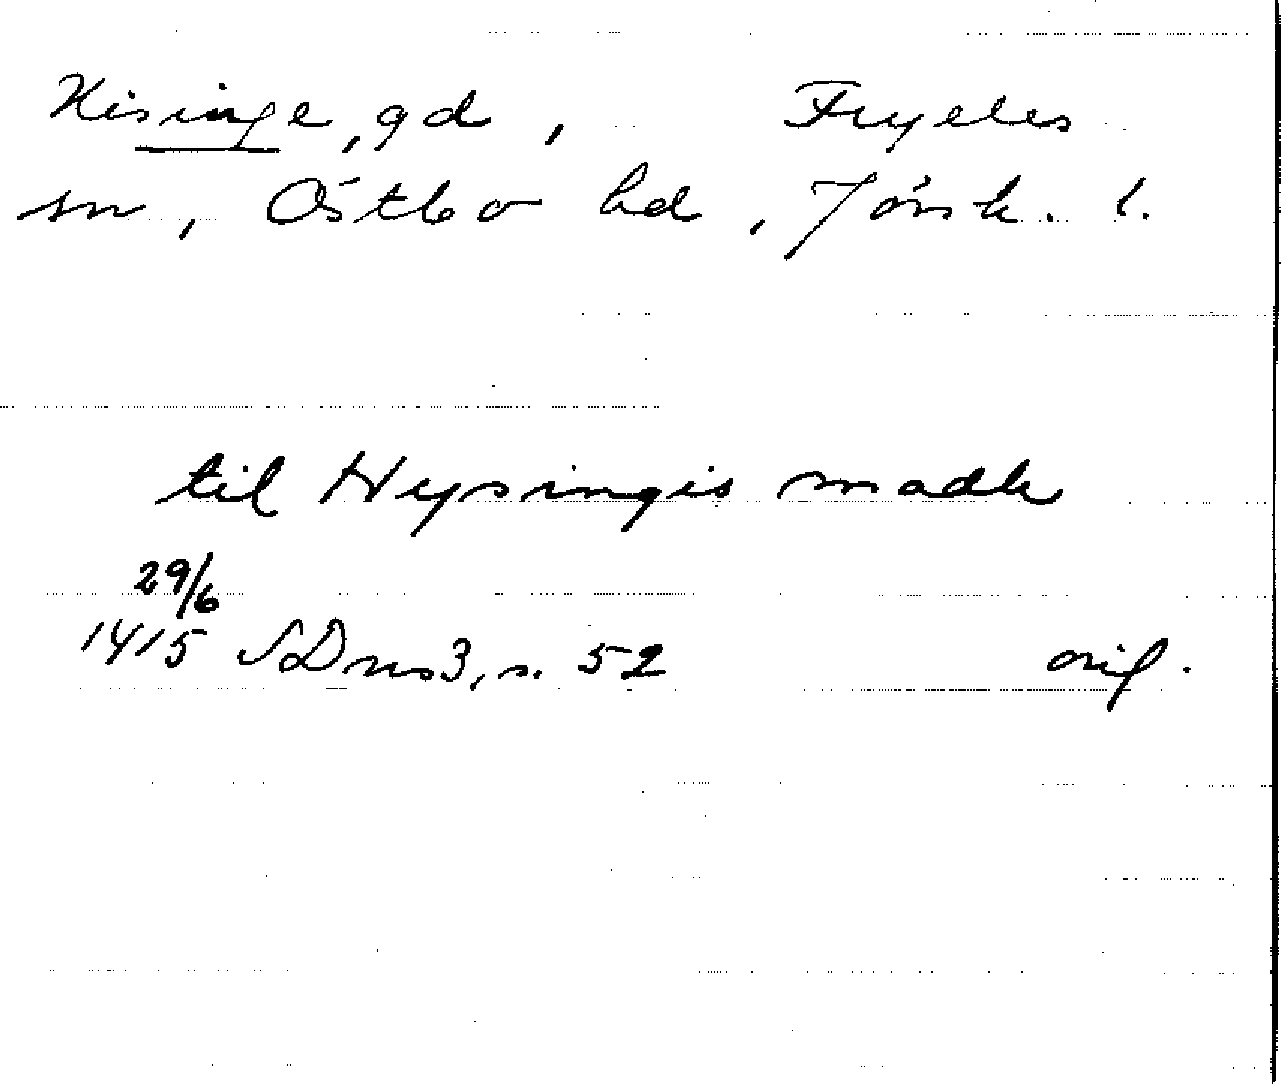 Hisinge, gd, Fryeles
sn, Östbo hd, Jönk. l.
til Hysingis madh
29/6
1415 SDns 3, s. 52 orig.